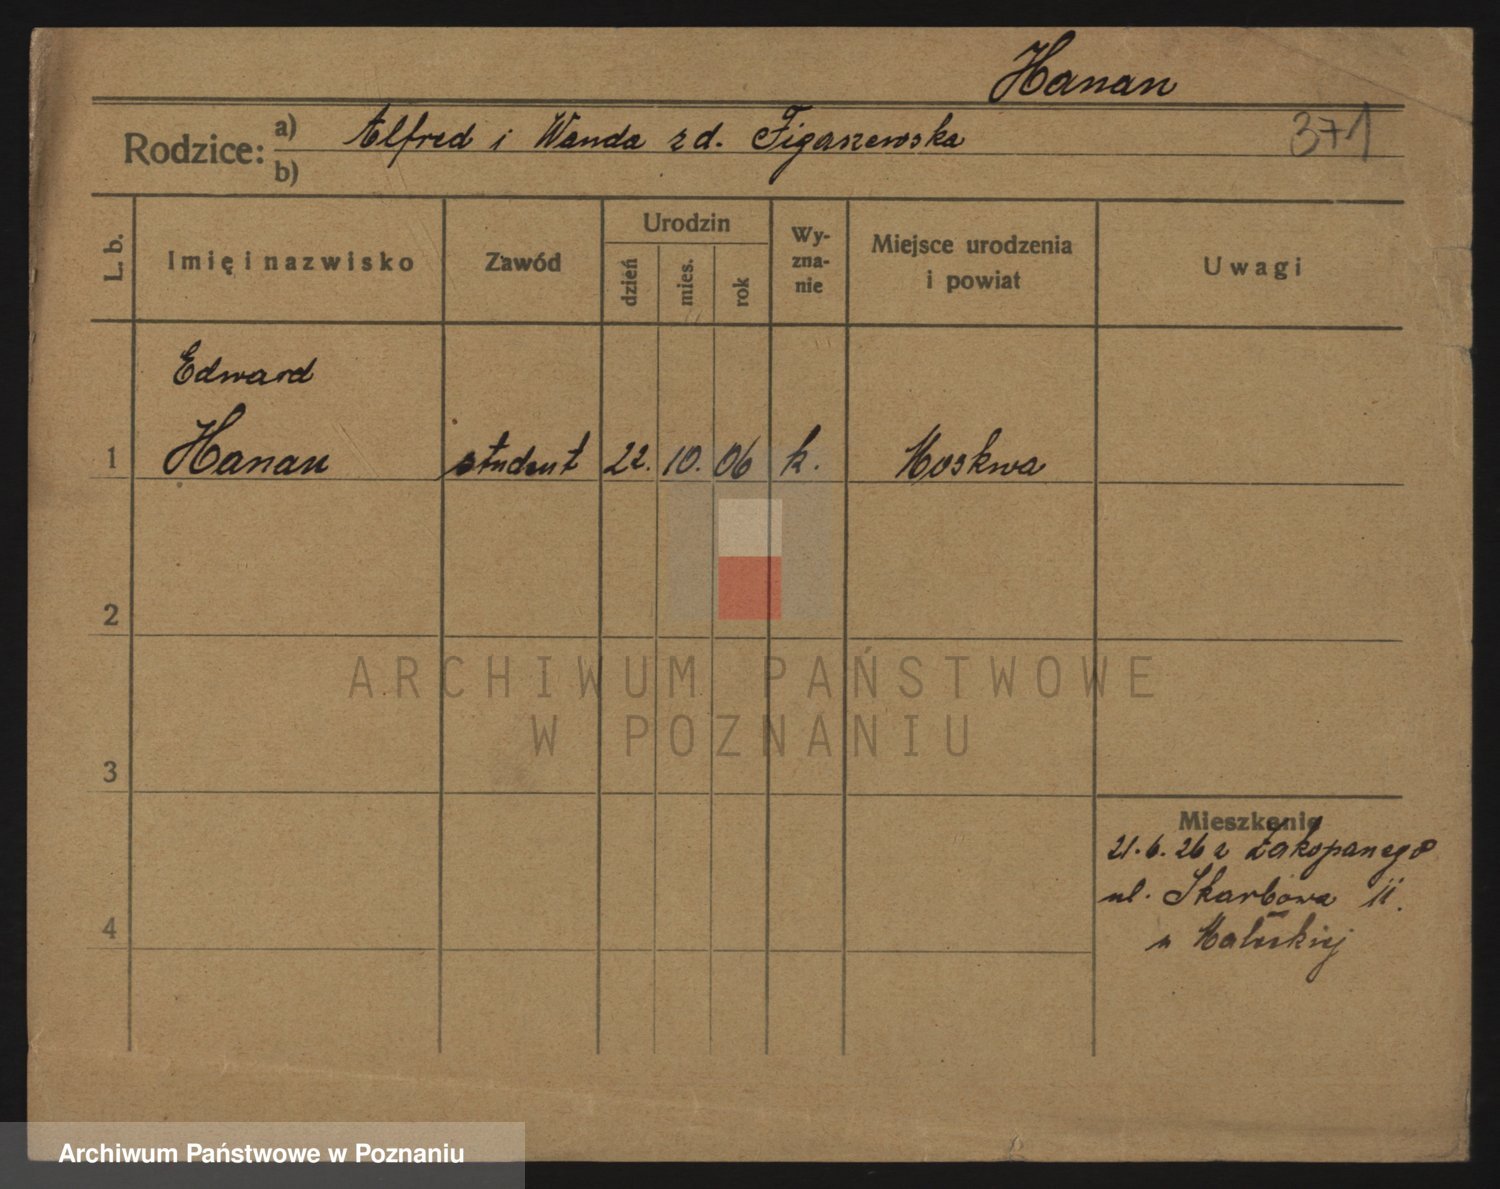 Hanan
Rodzice: a) Alfred i Wanda z d. Figaszewska
371
b)
L. b.
Imię i nazwisko
Zawód
Urodzin
dzień
mies.
rok
Wy-
zna-
nie
Miejsce urodzenia
i powiat
Uwagi
Edward
1 Hanan student 22. 10. 06 k. Moskwa
2
ARCHIWUM PAŃSTWOWE
W POZNANIU
3
Mieszkanie
21.6.26 z Zakopanego
ul. Skarbowa 11.
4
Archiwum Państwowe w Poznaniu